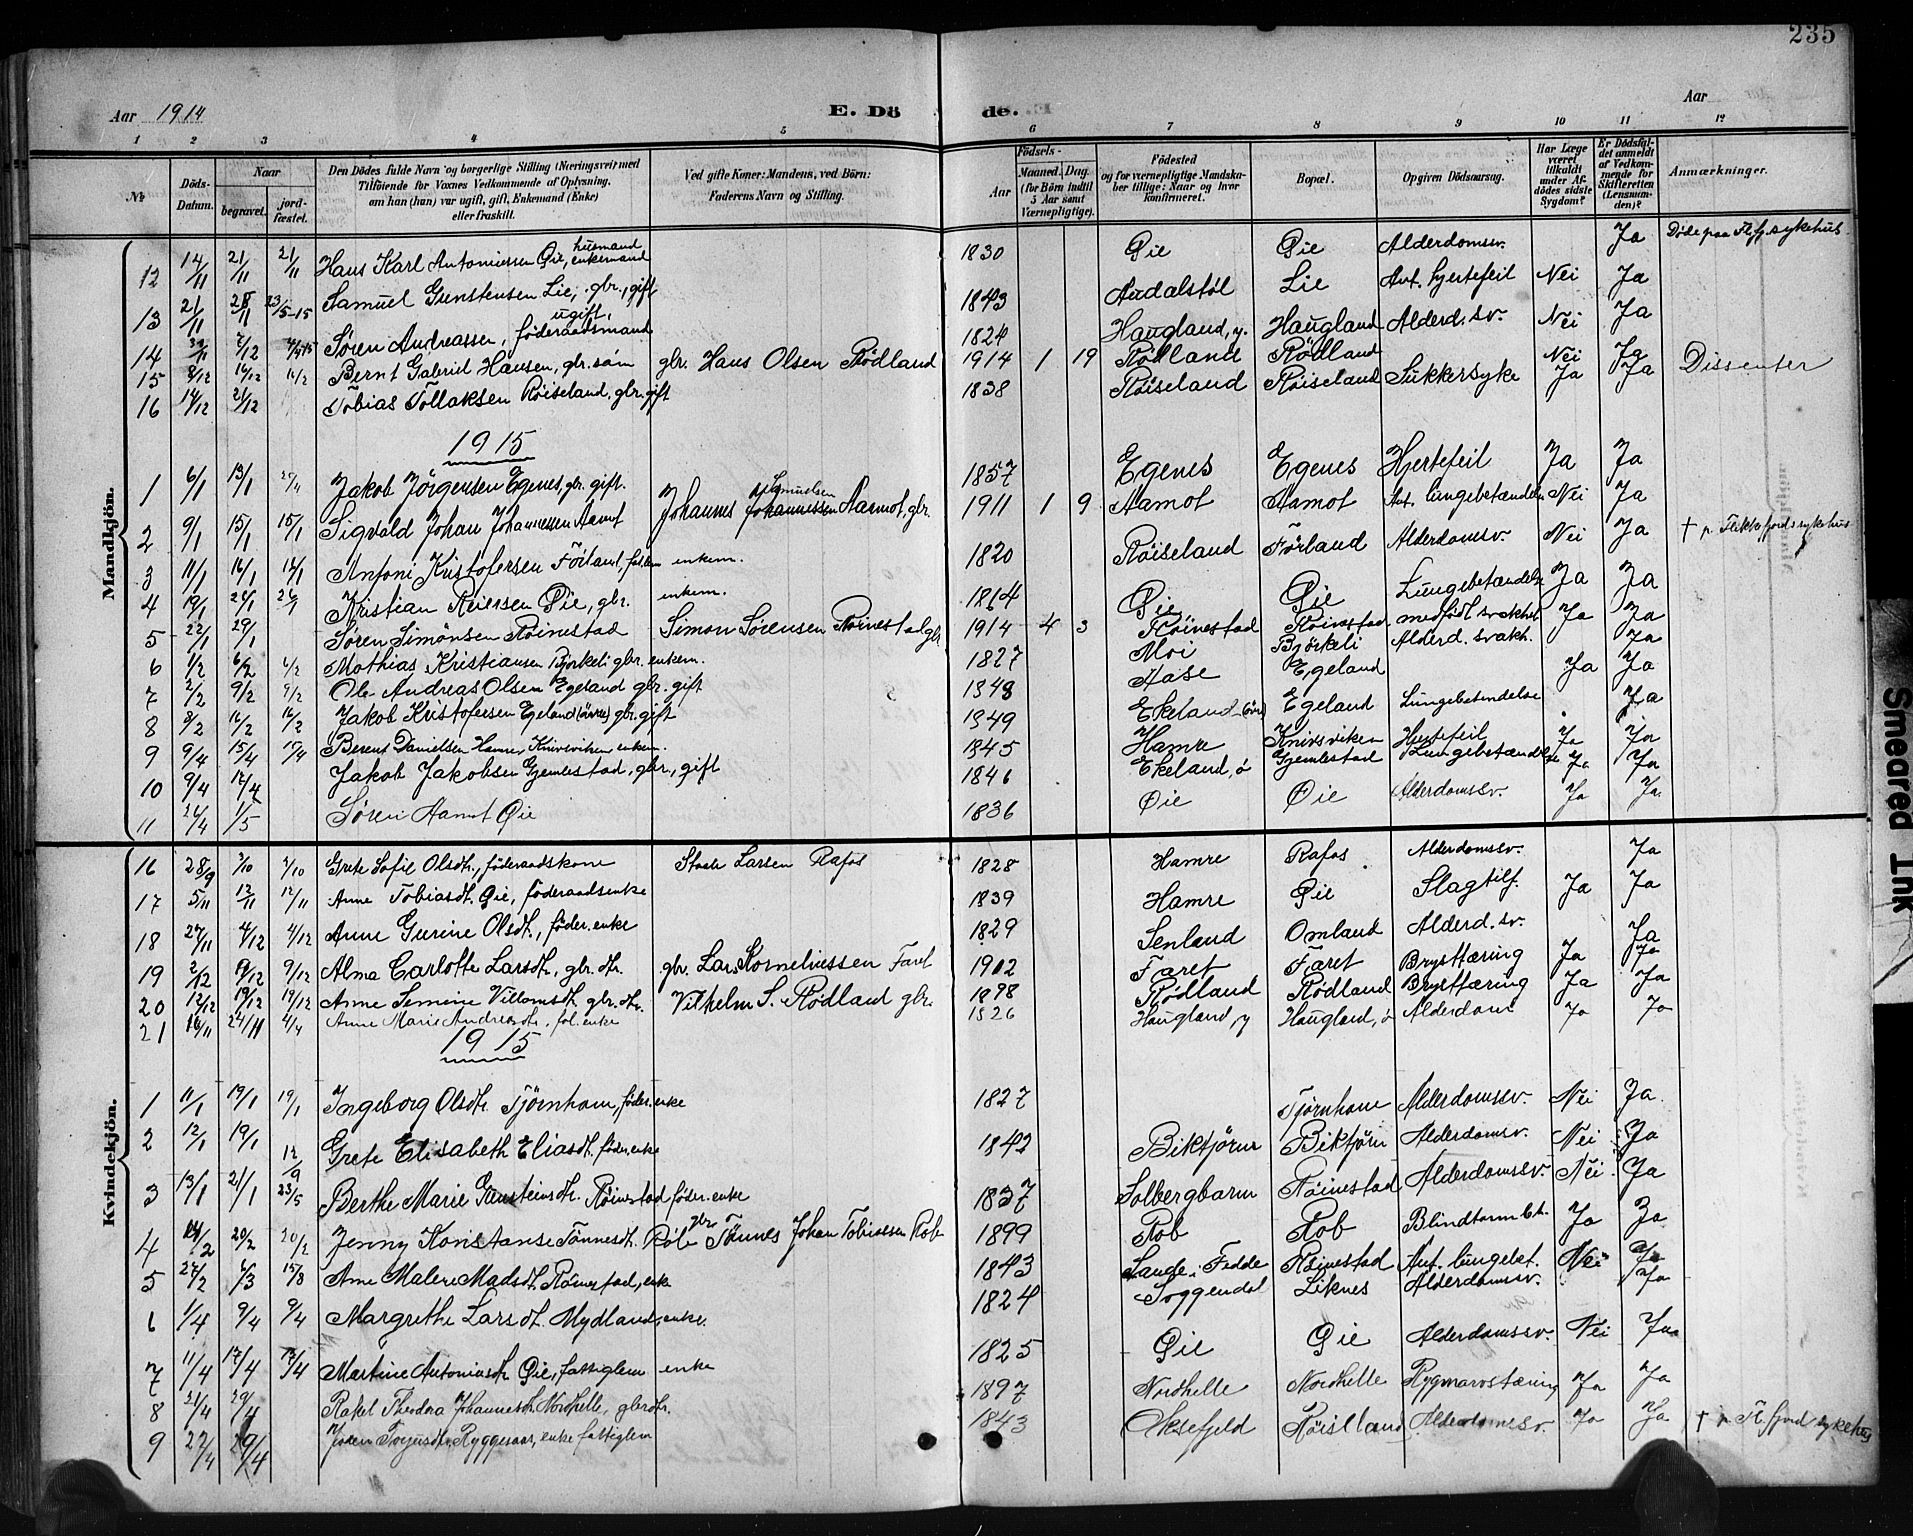 235
Aar 1914 E. Dö de. Aar
1 2 3 4 5 6 7 8 9 10 11 12
№ Döds-Datum. Naar begravet. jordfæstet. Den Dödes fulde Navn og borgerlige Stilling (Næringsvei) med Tilföiende for Voxnes Vedkommende af Oplysning, om han (hun) var ugift, gift, Enkemand (Enke) eller fraskilt. Ved gifte Koner: Mandens, ved Börn: Faderens Navn og Stilling. Födsels- Aar Maaned. Dag. (for Börn indtil 5 Aar samt Værnepligtige). Födested og for værnepligtige Mandskaber tillige: Naar og hvor konfirmeret. Bopæl. Opgiven Dödsaarsag. Har Læge været tilkaldt under Afdödes sidste Sygdom? Er Dödsfaldet anmeldt af Vedkommende for Skifteretten (Lensmanden)? Anmærkninger.
Mandkjön.
12 14/11 21/11 21/11 Hans Karl Antoniessen Øie, husmand enkemand 1830 Øie Øie Alderdomsv. Ja Døde paa Fl.fj. sykehus.
13 21/11 28/11 23/5-15 Samuel Grenstensen Lie, gbr., gift 1843 Audalstöl Lie Ant. hjertefeil Nei Ja
14 /11 2/12 Søren Andreassen, føderaadsmand ugift, 1824 Haugland, y. Haugland Alderd. sv. Nei Ja
15 8/12 16/12 16/2 Bernt Gabriel Hansen, gbr. søn gbr. Hans Olsen Rødland 1914 1 19 Rødland Rødland Nei Ja
16 14/12 21/12 Tobias Tollaksen Røiseland, gbr. gift 1838 Røiseland Røiseland Sukkersyke Ja Ja Dissenter
1915
1 6/1 13/1 27/4 Jakob Jörgensen Egenes, gbr. gift. 1857 Egenes Egenes Hjertefeil Ja Ja
2 9/1 15/1 15/1 Sigvald Johan Johannessen Aamot Johannes Samuelsen Aamot, gbr. 1911 1 9 Aamot Aamot Ant. lungebetændelse Nei Ja
3 11/1 16/1 16/1 Antoni Kristofersen Förland, enkem. 1820 Røiseland Förland Alderdomsv. Nei Ja † p. Flekkefjords sykehus
4 19/1 26/1 26/1 Kristian Reiersen Øie, gbr. enkem. 1864 Øie Øie Lungebetændelse Ja Ja
5 22/1 29/1 Søren Simonsen Røinestad Simon Sørensen Røinestad gbr. 1914 4 3 Røinestad Røinestad medfødt svakhet Ja Ja
6 1/2 6/2 6/2 Mathias Kristiansen Bjørkeli gbr. enkem. 1827 Moi Bjørkeli Alderd. svakh. Ja
7 2/2 9/2 9/2 Ole Andreas Olsen Egeland gbr. gift 1848 Aase Egeland Ja Ja
8 8/2 16/2 16/2 Jakob Kristofersen Egeland (øvre) gbr. gift 1849 Ekeland (övr) Egeland Lungebetændelse Ja
9 9/4 15/4 15/4 Berent Danielsen Hamre, Knivsviken enkem. 1845 Hamre Knivsviken Hjertefeil Ja Ja
10 9/4 17/4 Jakob Jakobsen Gjemlestad, gbr., gift 1846 Ekeland, ö Gjemlestad Lungebetændelse Ja Ja
11 26/4 1/5 Søren Aamot Øie 1836 Øie Øie Alderdomssv. Ja Ja
Kvindekjön.
16 28/9 3/10 3/10 Grete Sofie Olsdtr., föderaadskone Staale Larsen Rafos 1828 Hamre Rafos Alderdomssv. Ja
17 5/11 12/11 12/11 Anne Tobiasdt. Øie, föderaadsenke 1839 Hamre Øie Slagtilf. Ja Ja
18 27/11 4/12 4/12 Anne Gurine Olsdtr., föder. enke 1829 Senland Omland Alderd. sv. Ja
19 2/12 9/12 9/12 Alma Carlotte Larsdtr, gbr. dtr. gbr. Lars Korneliussen Faret 1902 Faret Faret Brysttæring Ja Ja
20 12/12 19/12 19/12 Anne Semine Villomsdt. gbr. dtr. Vilhelm S. Rødland gbr. 1898 Rødland Rødland Brysttæring Ja Ja
21 16/11 24/11 4/4 Anne Marie Andreasdt., fol. enke 1826 Haugland, y Haugland, ö Alderdom Ja Ja
1915
1 11/1 19/1 19/1 Ingeborg Olsdtr. Tjörnhom, föder. enke 1827 Tjörnhom Alderdomssv. Nei Ja.
2 12/1 19/1 12/9 Grete Elisabeth Eliasdt. föder. enke 1842 Biktjörn Biktjörn Alderdomsv. Nei Ja
3 13/1 21/1 23/5 Berthe Marie Grensteinsdtr. Røinestad föder. enke 1837 Solbergbarm Røinestad Alderdomssv. Nei Ja
4 14/2 20/2 20/2 Jenny Konstanse Tønnesdt. Rob gbr Tønnes Johan Tobiassen Rob 1899 Rob Rob Blindtarmbet. Ja Ja
5 27/2 6/3 15/8 Ane Malene Madsdt. Røinestad, enke 1843 Lauge i Fedde Røinestad Ant. lungebet. Nei Ja
6 1/4 9/4 9/4 Margrethe Larsdt. Mydland, enke. 1824 Soggendal Liknes Alderdomssv. Ja
7 11/4 17/4 17/4 Martine Antoniusdt. Øie, fattiglem enke 1825 Øie Øie Alderdomssv. Nei Ja
8 21/4 29/4 Rakel Theodora Johannesdt. Nordhelle, gbrdtr. 1897 Nordhelle Nordhelle Rygmarvstæring Ja Ja
9 27/4 29/4 Ryggesaar, enke fattiglem 1843 Øksefjeld Røiseland Alderdomssv. Ja Ja † p. Fl.fjord sykehus
Smeared Ink